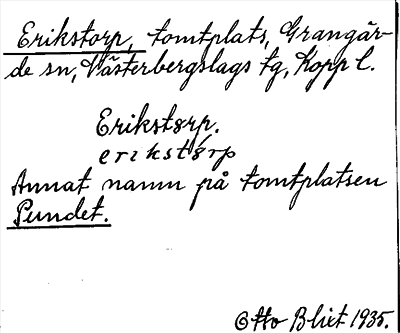 Erikstorp, tomtplats, Grangär-
de sn, Västerbergslags tg, Kopp l.
Erikstørp.
erikstørp
Annat namn på tomtplatsen
Pundet.
Otto Blixt 1935.